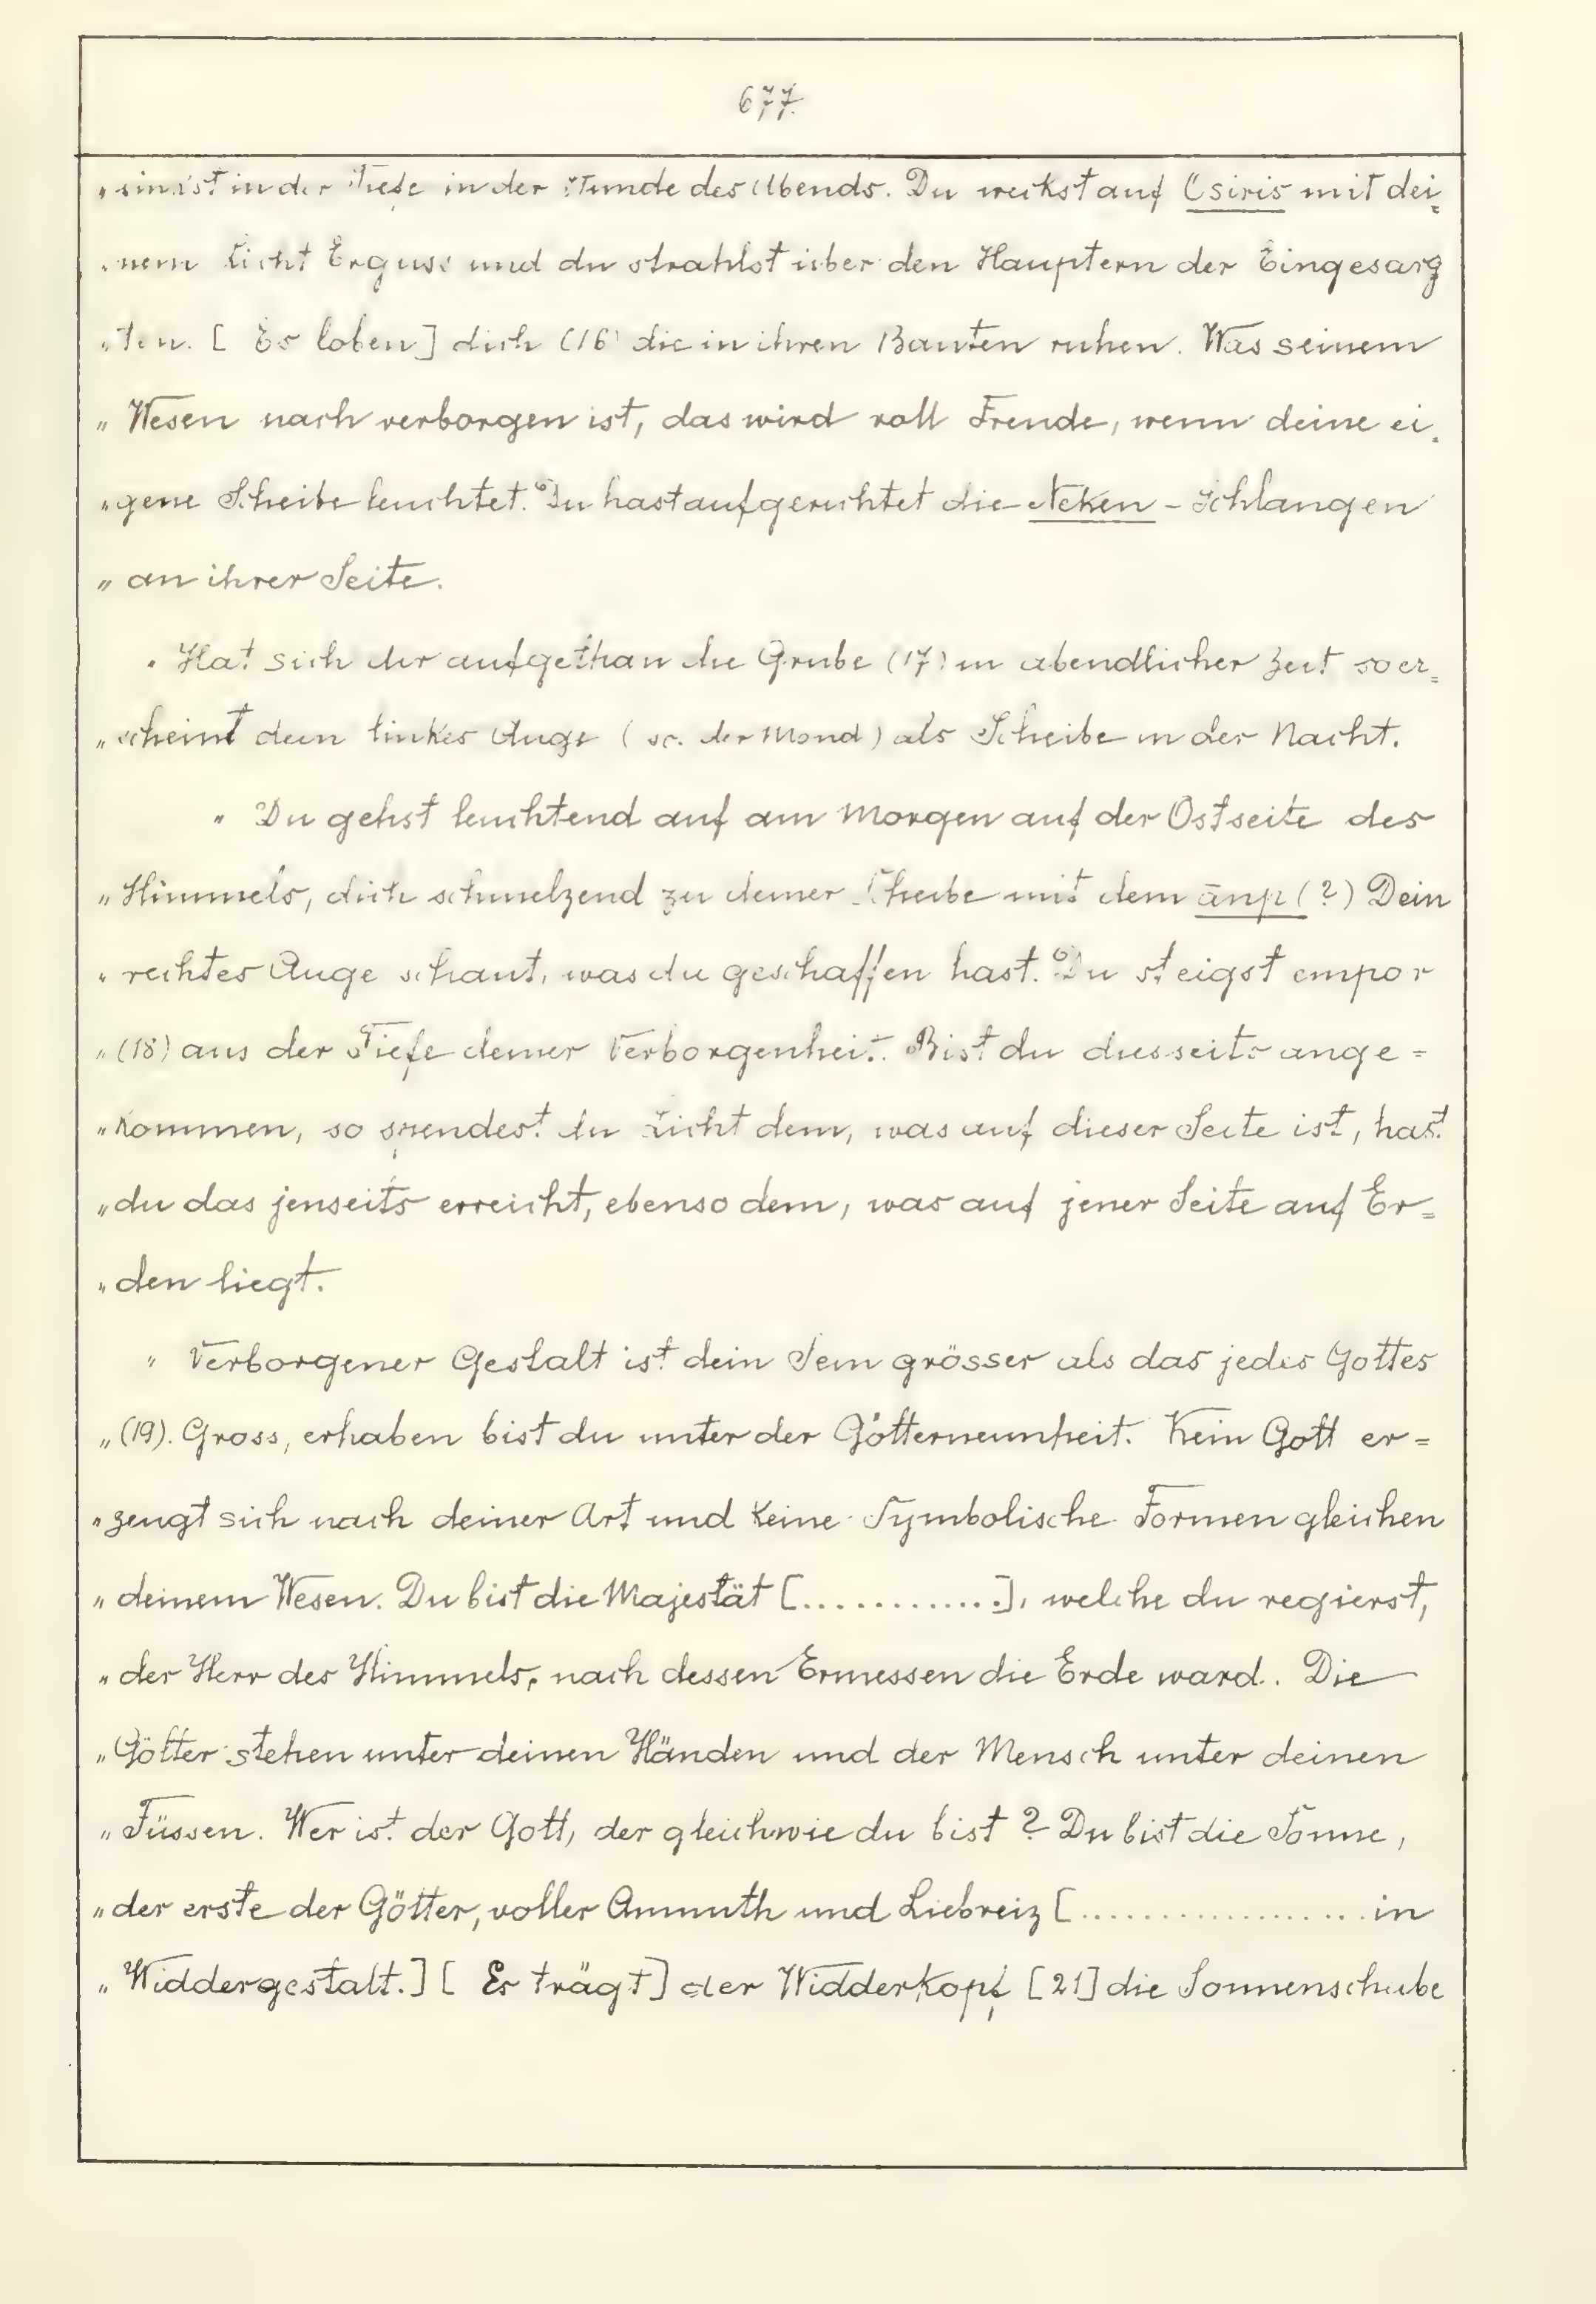 677.
„ sinkst in der Tiefe in der Stunde des Abends. Du weckst auf Osiris mit dei=
„ nem Licht Erguss und du strahlst über den Häuptern der Eingesarg
„ ten. [ Es loben ] dich (16) die in ihren Bauten ruhen. Was seinem
„ Wesen nach verborgen ist, das wird voll Freude, wenn deine ei=
„ gene Scheibe leuchtet. Du hast aufgerichtet die Neken - Schlangen
„ an ihrer Seite.
„ Hat sich dir aufgethan die Grube (17) in abendlicher Zeit so er=
„ scheint dein linkes Auge ( sc. der Mond ) als Scheibe in der Nacht.
„ Du gehst leuchtend auf am Morgen auf der Ostseite des
„ Himmels, dich schmelzend zu deiner Scheibe mit dem ānp (?) Dein
„ rechtes Auge schaut, was du geschaffen hast. Du steigst empor
„ (18) aus der Tiefe deiner Verborgenheit. Bist du diesseits ange =
„ kommen, so spendest du Licht dem, was auf dieser Seite ist, hast
„ du das jenseits erreicht, ebenso dem, was auf jener Seite auf Er=
„ den liegt.
„ Verborgener Gestalt ist dein Sein grösser als das jedes Gottes
„ (19). Gross, erhaben bist du unter der Götterneunheit. Kein Gott er =
„ zeugt sich nach deiner Art und keine Symbolische Formen gleichen
„ deinem Wesen. Du bist die Majestät [.............], welche du regierst,
„ der Herr des Himmels, nach dessen Ermessen die Erde ward. Die
„ Götter stehen unter deinen Händen und der Mensch unter deinen
„ Füssen. Wer ist der Gott, der gleichwie du bist ? Du bist die Sonne,
„ der erste der Götter, voller Anmuth und Liebreiz [.................... in
„ Widdergestalt.] [ Es trägt ] der Widderkopf [21] die Sonnenscheibe